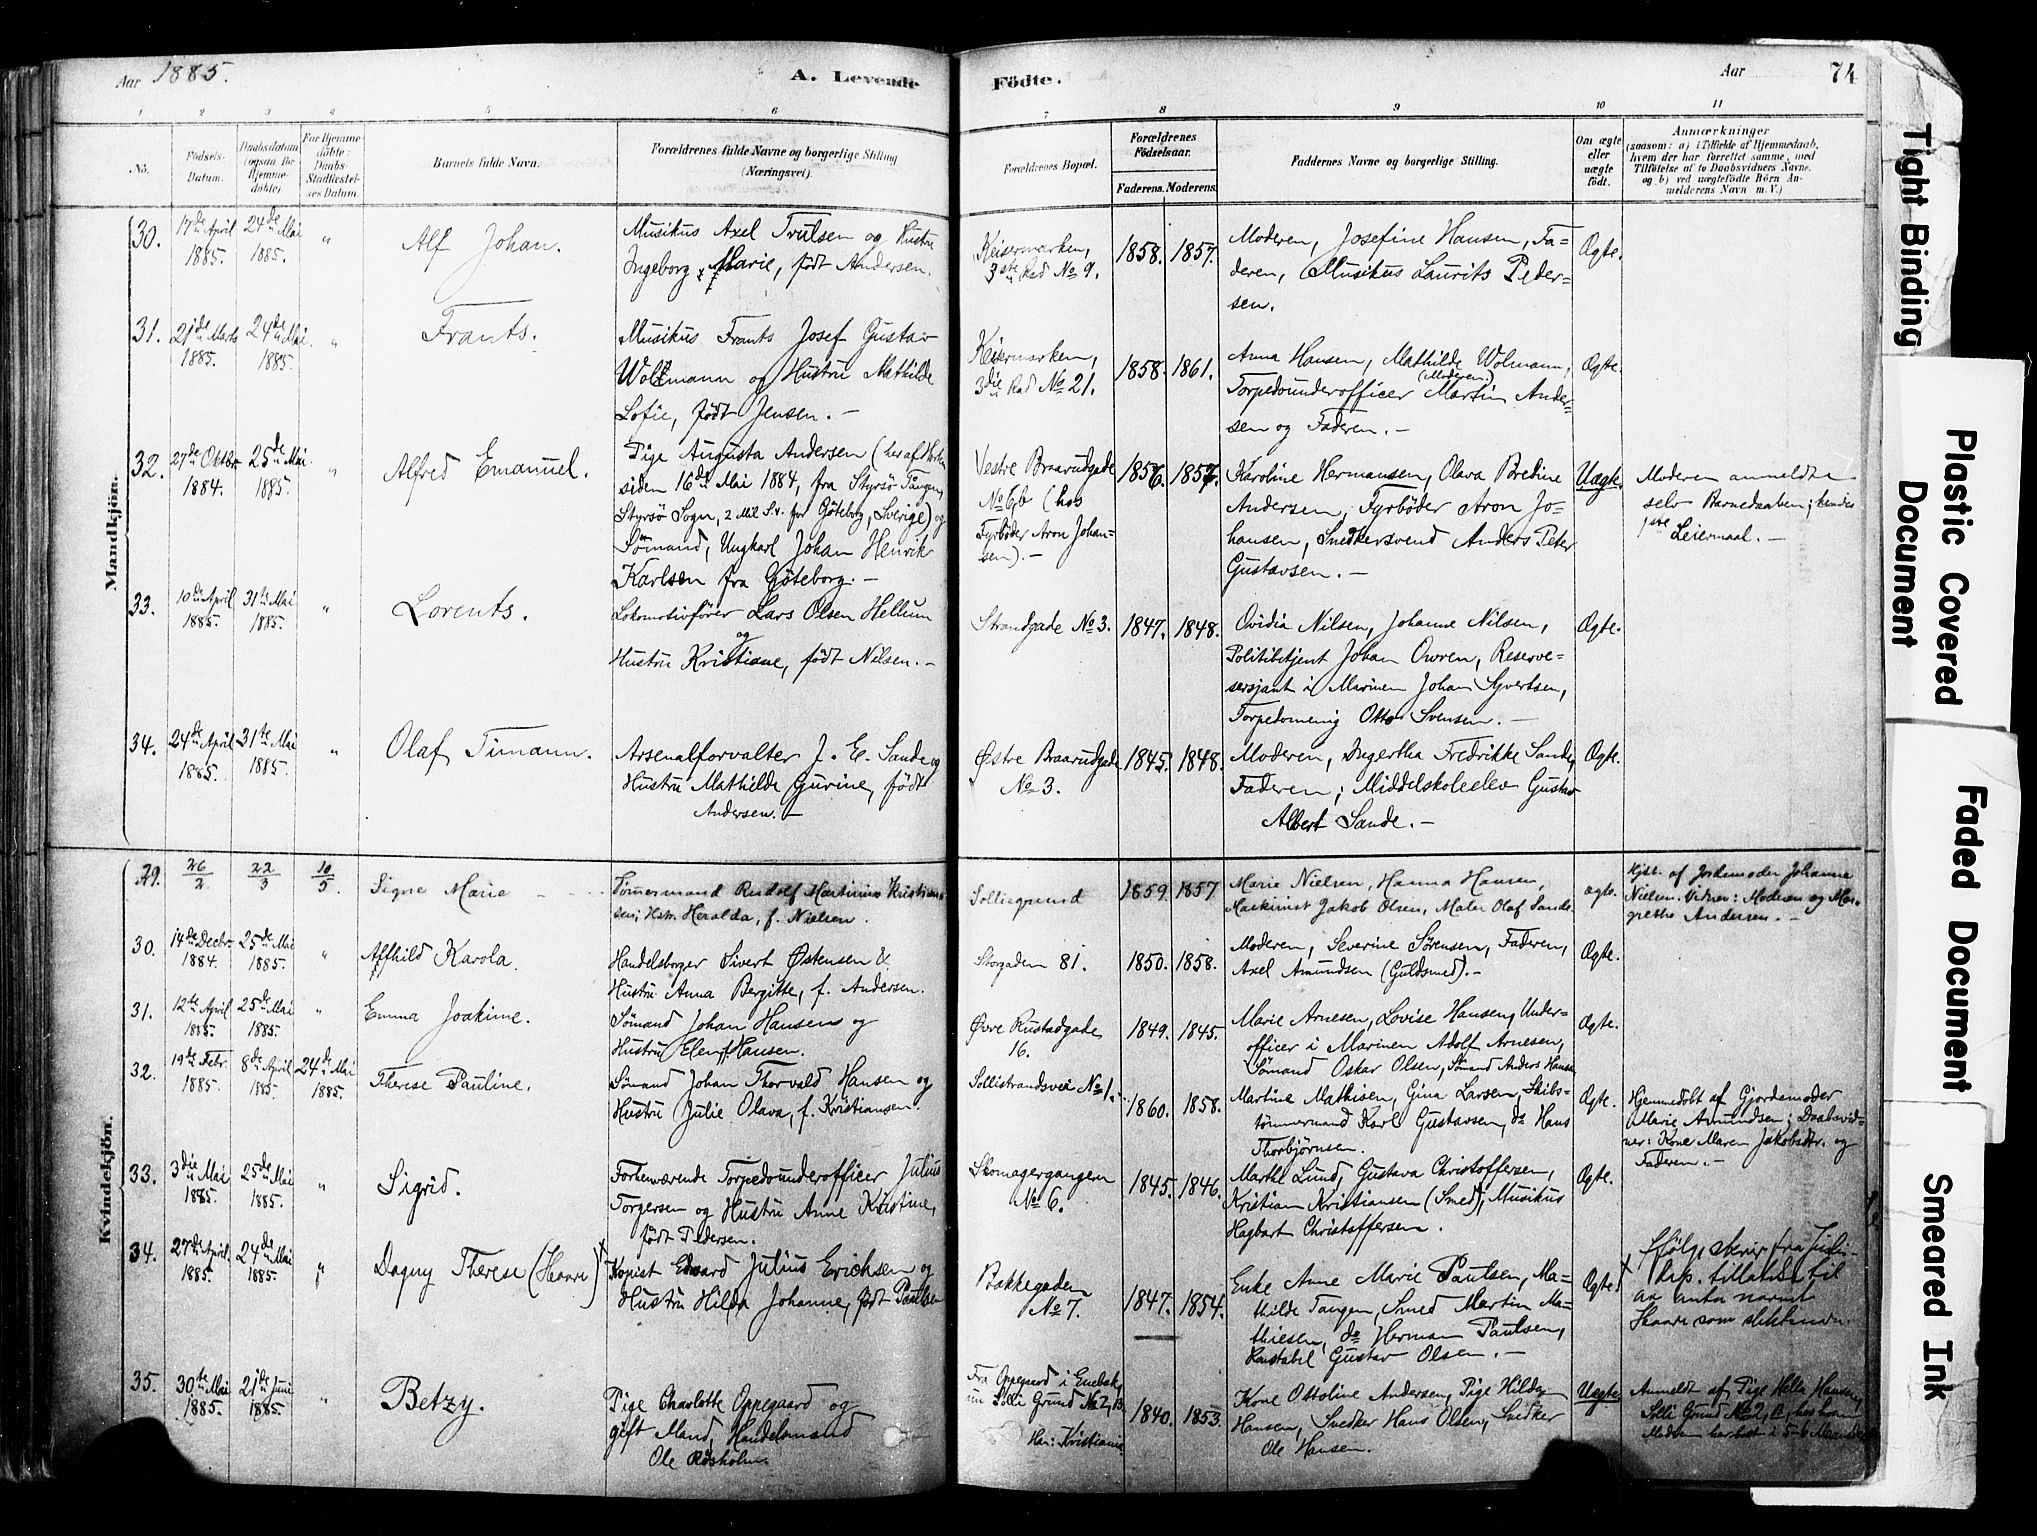 Aar 1885.
A. Levende
Födte.
Aar
74
1
2
3
4
5
6
7
8
9
10
11
No.
Födsels-
Datum.
Daabsdatum
(ogsaa for
Hjemme-
döbte).
For Hjemme-
döbte:
Daabs-
Stadfæstel-
ses Datum
Barnets fulde Navn.
Forældrenes fulde Navne og borgerlige Stilling
(Næringsvei).
Forældrenes Bopæl.
Forældrenes
Födselsaar.
Faderens.
Moderens.
Faddernes Navne og borgerlige Stilling.
Om ægte
eller
uægte
födt.
Anmærkninger
(saasom: a) i Tilfælde af Hjemmedaab,
hvem der har forrettet samme, med
Tilföielse af to Daabsvidners Navne,
og b) ved uægtefödte Börn An-
melderens Navn m. V.)
Mandkjön.
30.
17de April
1885.
24de Mai
1885.
"
Alf Johan.
Musikus Axel Trulsen og Hustru
Ingeborg Marie, født Andersen.
Keisermarken,
3die Rad No 9.
1858.
1857.
Moderen, Josefine Hansen, Fa-
deren, Musikus Laurits Peder-
sen.
Ægte.
31.
21de Marts
1885.
24de Mai
1885.
"
Frants.
Musikus Frants Josef Gustav
Wolmann og Hustru Mathilde
Sofie, født Jensen. –
Keisermarken,
3die Rad No 21.
1858.
1861.
Anna Hansen, Mathilde Wolmann,
(Moderen)
Torpedounderofficer Martin Ander-
sen og Faderen. –
Ægte.
32.
27de Oktbr.
1884.
25de Mai
1885.
"
Alfred Emanuel.
Pige Augusta Andersen (her af
siden 16de Mai 1884, fra Styrsö Tången,
Styrsö Sogn, 2 Mil Sv. for Göteborg, Sverige) og
Sömand, Ungkarl Johan Henrik
Karlsen fra Göteborg. –
Vestre Braarudgade
No 6, b (hos
Fyrbøder Aron Johan-
sen). –
1856.
1857.
Karoline Hermansen, Olava Bredine
Andersen, Fyrbøder Aron Jo-
hansen, Snedkersvend Anders Peter
Gustavsen. –
Uægte.
Moderen anmeldte
selv Barnedaaben; hendes
1ste Leiermaal. –
33.
10de April
1885.
31te Mai
1885.
"
Lorents.
Lokomotivfører Lars Olsen Hellum
og
Hustru Kristiane, født Nilsen. –
Strandgade No 3.
1847.
1848.
Ovidia Nilsen, Johanne Nilsen,
Politibetjent Johan Owren, Reserve-
sersjant i Marinen Johan Syvertsen,
Torpedomenig Otto Svensen. –
Ægte.
34.
24de April
1885.
31te Mai
1885.
"
Olaf Timann.
Arsenalforvalter J. E. Sande og
Hustru Mathilde Gurine, født
Andersen. –
Østre Braarudgade
No 3.
1845.
1848.
Moderen, Dagertha Fredrikke Sande,
Faderen; Middelskoleelev Gustav
Albert Sande. –
Ægte.
Kvindekjön.
29.
26/2
22/3
10/5.
Signe Marie
Tömermand Rudolf Martinius Kristian-
sen; Hstr. Heralda, f. Nielsen.
Solliegrund
1859
1857
Marie Nielsen, Hanna Hansen,
Maskinist Jakob Olsen, Maler Olaf Sande
ægte.
Hjdt. af Jordemoder Johanne
Nielsen. Vidner: Moderen og Mar-
grethe Andersen. –
30.
14de Decbr.
1884.
25de Mai
1885.
"
Alfhild Karola.
Handelsborger Sivert Østensen &
Hustru Anna Bergitte, f. Andersen.
Storgaden 81.
1850.
1858.
Moderen, Severine Sørensen, Faderen,
Axel Amundsen (Guldsmed). –
Ægte.
31.
12te April
1885.
25de Mai
1885.
"
Emma Joakime.
Sömand Johan Hansen og
Hustru Elen Hansen.
Øvre Rustadgade
16.
1849.
1845.
Marie Arnesen, Lovise Hansen, Under-
officer i Marinen Adolf Arnesen,
Sömand Oskar Olsen, Sömand Anders Hansen
Ægte.
32.
19de Febr.
1885.
8de April
1885.
24de Mai
1885.
Therese Pauline.
Sömand Johan Thorvald Hansen og
Hustru Julie Olava, f. Kristiansen.
Sollistrandsvei No 1.
1860.
1858.
Martine Mathisen, Gina Larsen, Skibs-
tömmermand Karl Gustavsen, do Hans
Thorbjörnsen.
Ægte.
Hjemmedøbt af Gjordemoder
Marie Amundsen; Daabsvid-
ner: Kone Maren Jakobsdtr. og
Faderen. –
33.
3die Mai
1885.
25de Mai
1885.
"
Sigrid.
Forhenværende Torpedounderofficer Julius
Torgersen og Hustru Anne Kristine,
født Pedersen.
Skomagergangen
No 6.
1845.
1846.
Marthe Lund, Gustava Christoffersen,
Kristian Kristiansen (Smed), Musikus
Hagbart Christoffersen.
Ægte.
34.
27de April
1885.
24de Mai
1885.
"
Dagny Therese (Haare)
Kopist Edvard Julius Erichsen og
Hustru Hilda Johanne, født Paulsen
Bakkegaden
No 7.
1847.
1854.
Enke Anne Marie Paulsen, Ma-
thilde Tangen, Smed Martin Ma-
thiesen, do Herman Paulsen,
Konstabel Gustav Olsen. –
Ægte.
ifølge skriv fra Justis-
dep. tillatelse til
aa anta navnet
Haare som slektsnavn.
35.
30te Mai
1885.
21de Juni
1885.
"
Betzy.
Pige Charlotte Oppegaard og
gift Mand, Handelsmand
Ole Røsholm.
Fra Oppegaard i Enebak,
nu Solli Grund No 2, B.
Han: Kristiania
1840.
1853.
Kone Ottoline Andersen, Pige Hilda
Hansen, Snedker Hans Olsen, Snedker
Ole Hansen.
Uægte
Anmeldt af Pige Helle Hansen,
Solli Grund No 2, B, hos hvem
Moderen har bot i 5-6 Maaneder
Tight Binding
Plastic Covered
Document
Faded Document
Smeared Ink